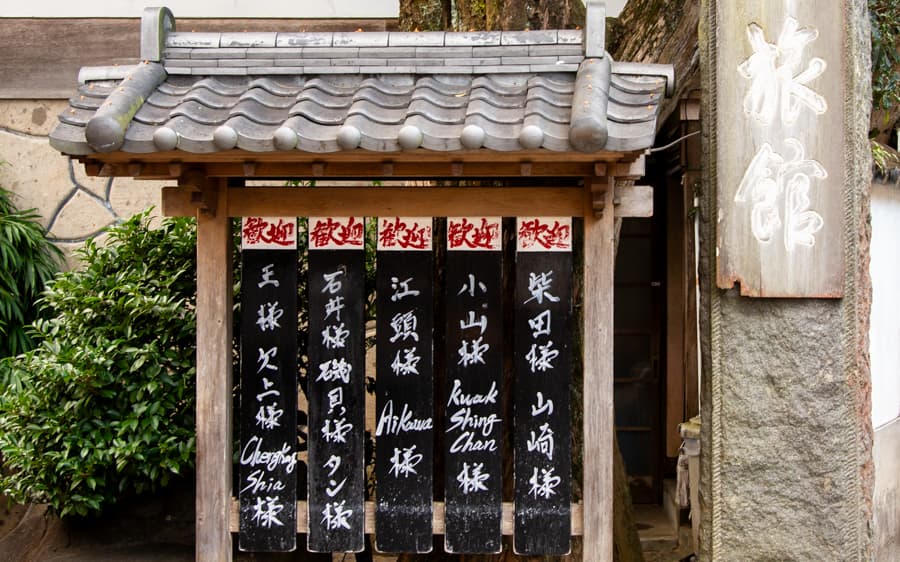 旅館
歓迎
柴田様 山崎様
歓迎
小山様
Kwak
Shing
Chan
様
歓迎
江頭様
Aikawa
様
歓迎
石井様 磯貝様 タン様
歓迎
王様 欠上様
Shia
様